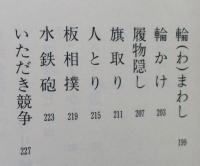 輪(わ)まわし 199
輪かけ 203
履物隠し 207
旗取り 211
人とり 215
板相撲 219
水鉄砲 223
いただき競争 227